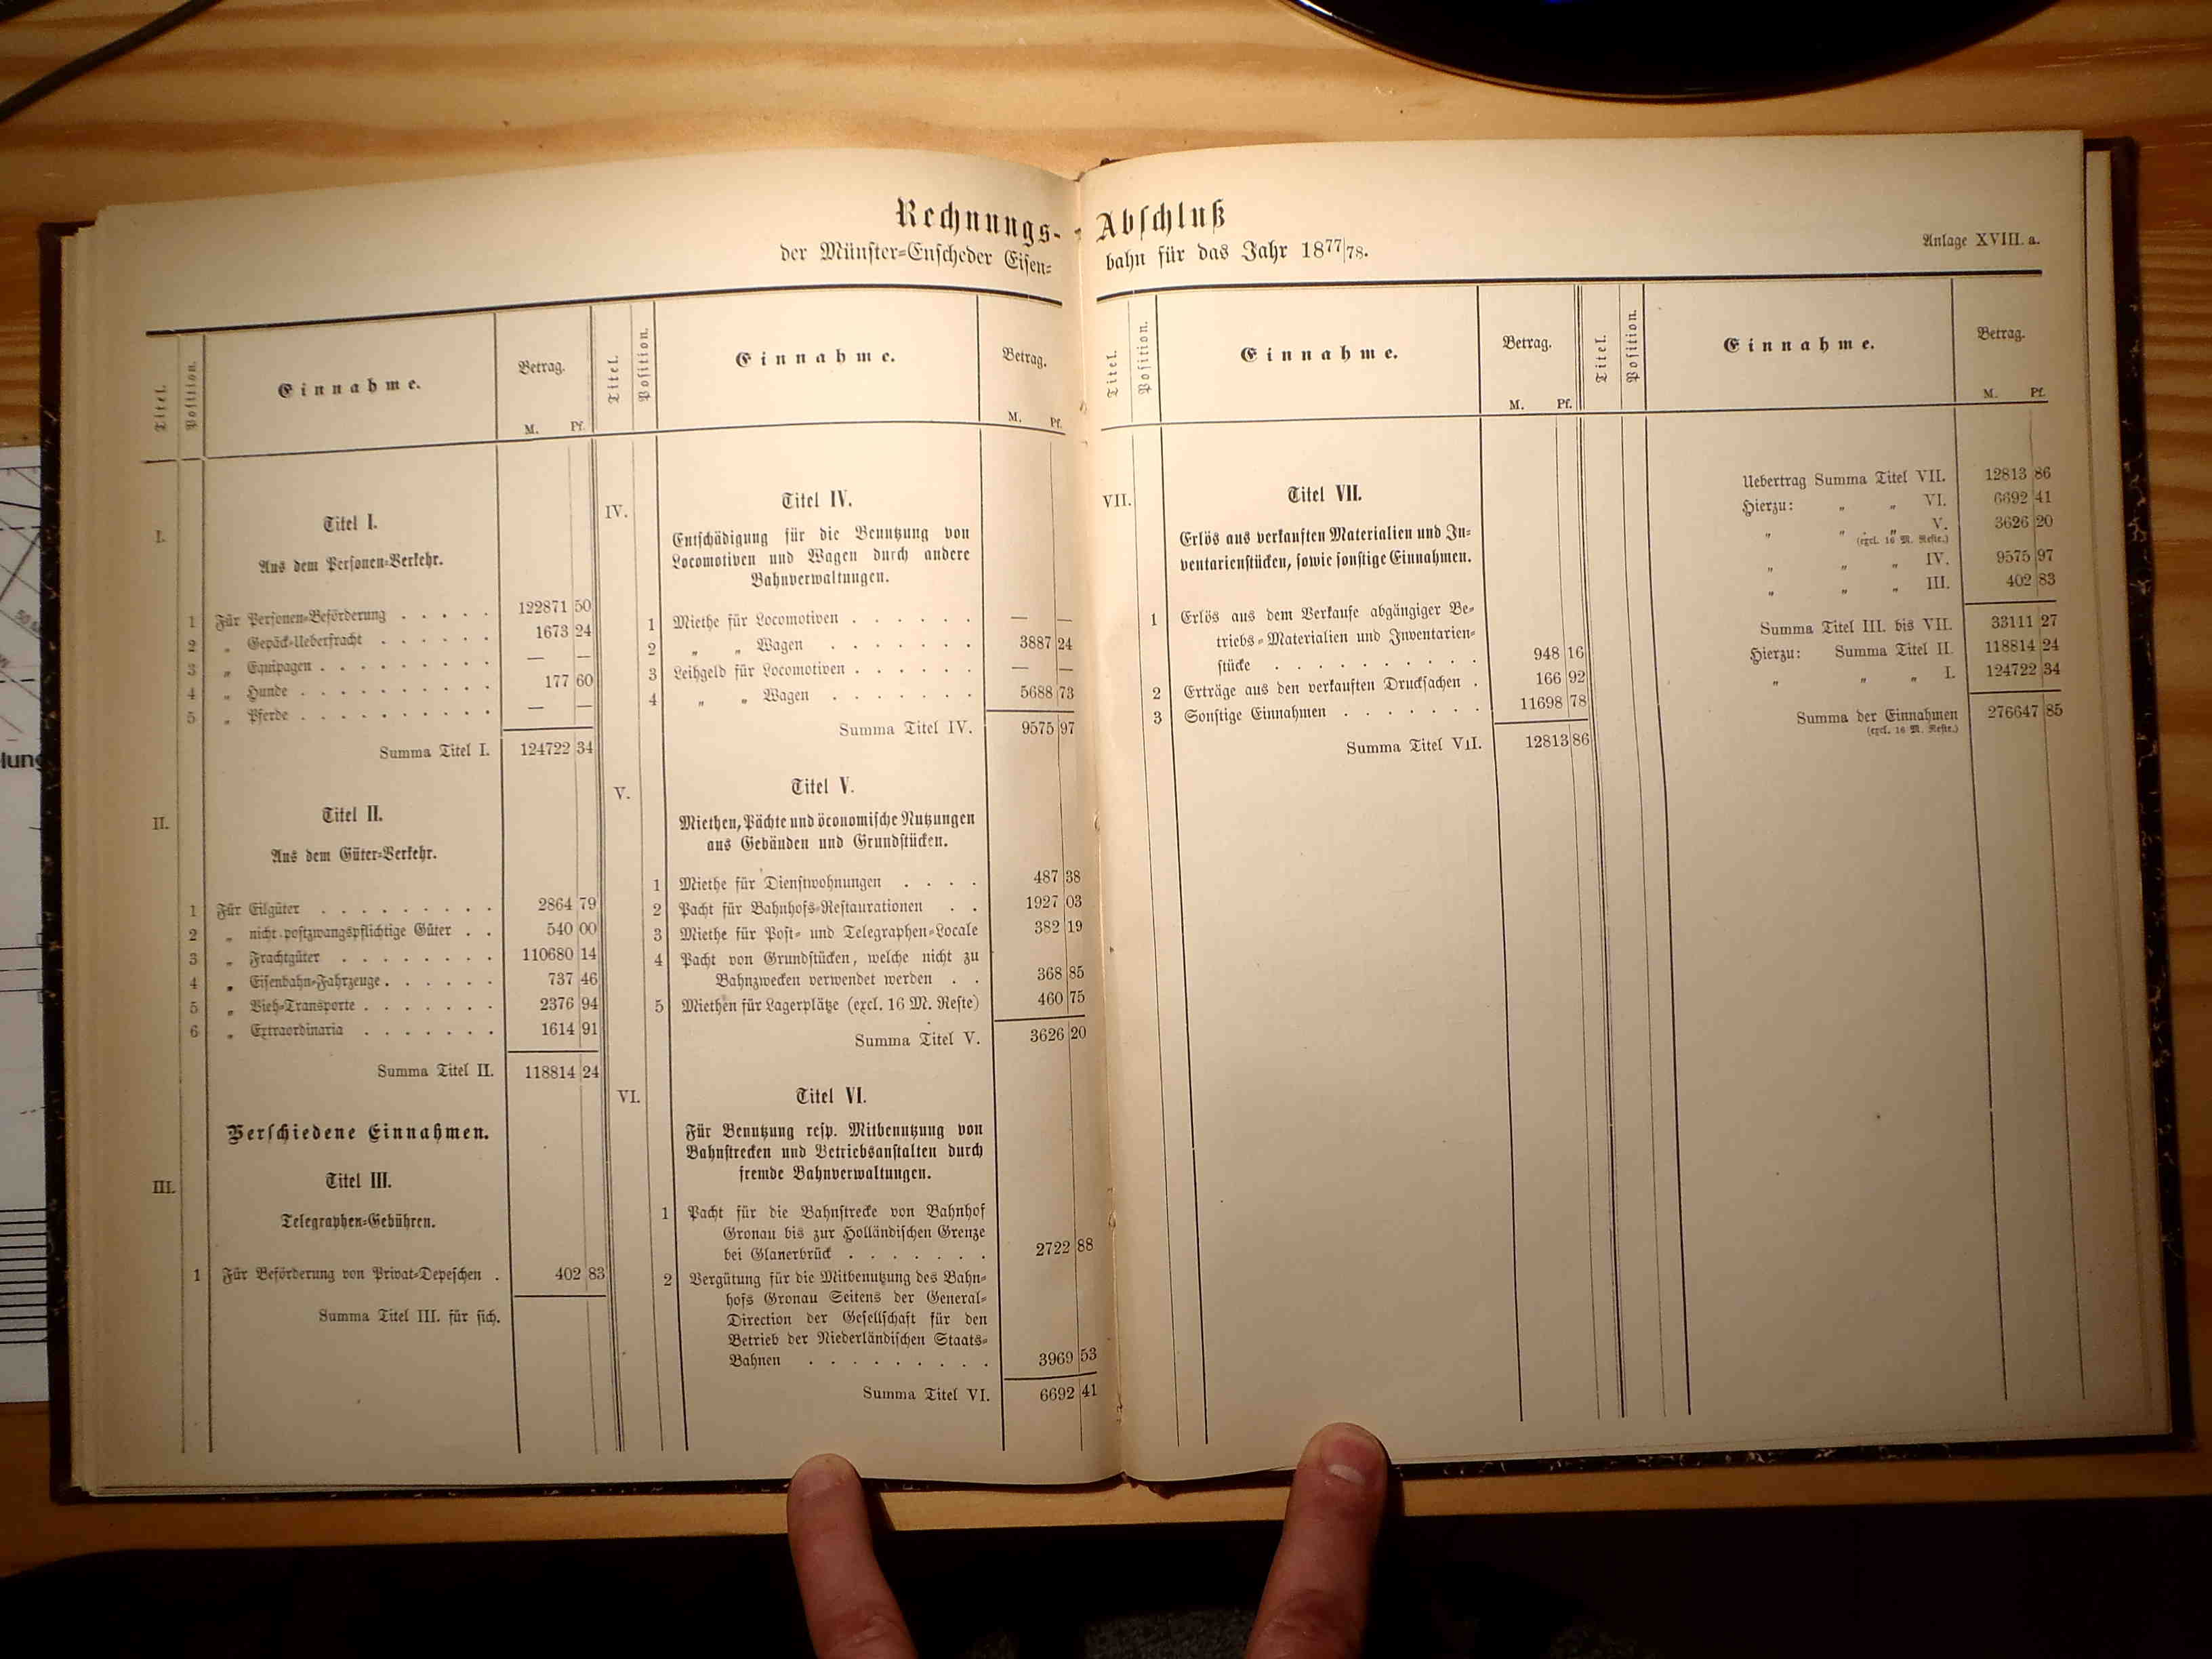 Rechnungs-Abschluß
der Münster-Enscheder Eisenbahn für das Jahr 1877/78.
Anlage XVIII. a.
Titel. Position. Einnahme. Betrag. M. Pf.
I.
Titel I.
Aus dem Personen-Verkehr.
1 Für Personen-Beförderung . . . . . 122871 50
2 „ Gepäck-Ueberfracht . . . . . . 1673 24
3 „ Equipagen . . . . . . . . . — —
4 „ Hunde . . . . . . . . . . 177 60
5 „ Pferde . . . . . . . . . . — —
Summa Titel I. 124722 34
II.
Titel II.
Aus dem Güter-Verkehr.
1 Für Eilgüter . . . . . . . . . 2864 79
2 „ nicht postzwangspflichtige Güter . . 540 00
3 „ Frachtgüter . . . . . . . . 110680 14
4 „ Eisenbahn-Fahrzeuge . . . . . . 737 46
5 „ Vieh-Transporte . . . . . . . 2376 94
6 „ Extraordinaria . . . . . . . 1614 91
Summa Titel II. 118814 24
Verschiedene Einnahmen.
III.
Titel III.
Telegraphen-Gebühren.
1 Für Beförderung von Privat-Depeschen . 402 83
Summa Titel III. für sich.
Titel. Position. Einnahme. Betrag. M. Pf.
IV.
Titel IV.
Entschädigung für die Benutzung von
Locomotiven und Wagen durch andere
Bahnverwaltungen.
1 Miethe für Locomotiven . . . . . . — —
2 „ „ Wagen . . . . . . . 3887 24
3 Leihgeld für Locomotiven . . . . . . — —
4 „ „ Wagen . . . . . . . 5688 73
Summa Titel IV. 9575 97
V.
Titel V.
Miethen, Pächte und öconomische Nutzungen
aus Gebäuden und Grundstücken.
1 Miethe für Dienstwohnungen . . . . 487 38
2 Pacht für Bahnhofs-Restaurationen . . 1927 03
3 Miethe für Post- und Telegraphen-Locale 382 19
4 Pacht von Grundstücken, welche nicht zu
Bahnzwecken verwendet werden . . 368 85
5 Miethen für Lagerplätze (excl. 16 M. Reste) 460 75
Summa Titel V. 3626 20
VI.
Titel VI.
Für Benutzung resp. Mitbenutzung von
Bahnstrecken und Betriebsanstalten durch
fremde Bahnverwaltungen.
1 Pacht für die Bahnstrecke von Bahnhof
Gronau bis zur Holländischen Grenze
bei Glanerbrück . . . . . . . 2722 88
2 Vergütung für die Mitbenutzung des Bahn-
hofs Gronau Seitens der General-
Direction der Gesellschaft für den
Betrieb der Niederländischen Staats-
Bahnen . . . . . . . . . 3969 53
Summa Titel VI. 6692 41
Titel. Position. Einnahme. Betrag. M. Pf.
VII.
Titel VII.
Erlös aus verkauften Materialien und In-
ventarienstücken, sowie sonstige Einnahmen.
1 Erlös aus dem Verkaufe abgängiger Be-
triebs-Materialien und Inventarien-
stücke . . . . . . . . . . 948 16
2 Erträge aus den verkauften Drucksachen . 166 92
3 Sonstige Einnahmen . . . . . . . 11698 78
Summa Titel VII. 12813 86
Titel. Position. Einnahme. Betrag. M. Pf.
Uebertrag Summa Titel VII. 12813 86
Hierzu: „ „ VI. 6692 41
„ „ „ V. 3626 20
(excl. 16 M. Reste.)
„ „ „ IV. 9575 97
„ „ „ III. 402 83
Summa Titel III. bis VII. 33111 27
Hierzu: Summa Titel II. 118814 24
„ „ „ I. 124722 34
Summa der Einnahmen 276647 85
(excl. 16 M. Reste.)